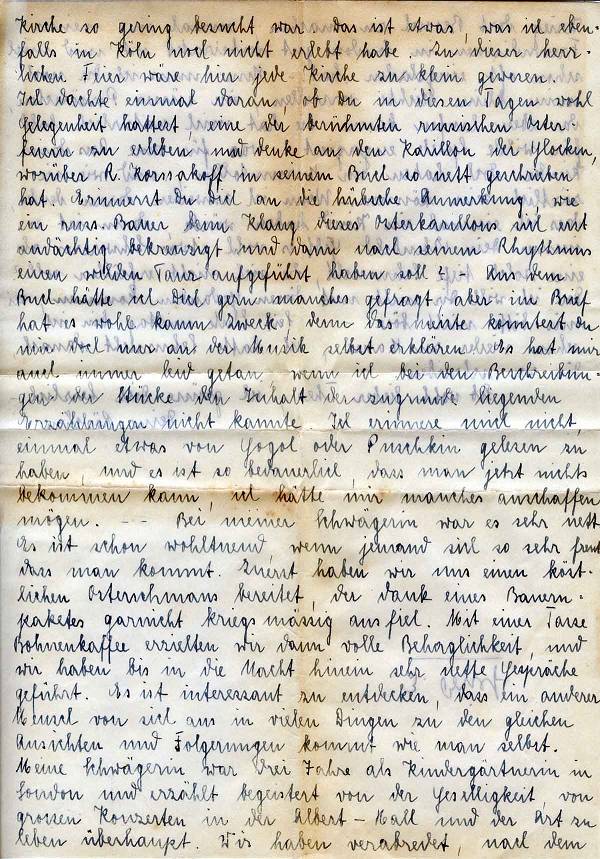 Kirche so gering besucht war - das ist etwas, was ich eben-
falls in Köln noch nicht erlebt habe. Zu dieser herr-
lichen Feier wäre hier jede Kirche zu klein gewesen.
Ich dachte einmal daran, ob Du in diesen Tagen wohl
Gelegenheit hattest, eine der berühmten russischen Oster
feiern zu erleben und denke an den Karillon der Glocken,
worüber R. Korssakoff in seinem Buch so nett geschrieben
hat. Erinnerst Du Dich an die hübsche Anmerkung, wie
ein russ. Bauer beim Klang dieses Osterkarillons sich erst
andächtig bekreuzigt und dann nach seinem Rhythmus
einen wilden Tanz aufgeführt haben soll? - Aus dem
Buch hätte ich Dich gern manches gefragt, aber im Brief
hat es wohl kaum Zweck, denn das meiste könntest Du
mir doch nur an der Musik selbst erklären. Es hat mir
auch immer leid getan, wenn ich bei den Beschreibun-
gen der Stücke den Inhalt der zugrunde liegenden
Erzählungen nicht kannte. Ich erinnere mich nicht,
einmal etwas von Gogol oder Puschkin gelesen zu
haben, und es ist so bedauerlich, dass man jetzt nichts
bekommen kann, ich hätte mir manches anschaffen
mögen. - - - Bei meiner Schwägerin war es sehr nett
Es ist schon wohltuend, wenn jemand sich so sehr freut
dass man kommt. Zuerst haben wir uns einen köst-
lichen Osterschmaus bereitet, der dank eines Bauern-
paketes garnicht kriegsmässig ausfiel. Mit einer Tasse
Bohnenkaffee erzielten wir dann volle Behaglichkeit, und
wir haben bis in die Nacht hinein sehr nette Gespräche
geführt. Es ist interessant zu entdecken, dass ein anderer
Mensch von sich aus in vielen Dingen zu den gleichen
Ansichten und Folgerungen kommt wie man selbst.
Meine Schwägerin war drei Jahre als Kindergärtnerin in
London und erzählt begeistert von der Geselligkeit, von
grossen Konzerten in der Albert-Hall und der Art zu
leben überhaupt. Wir haben verabredet, nach dem